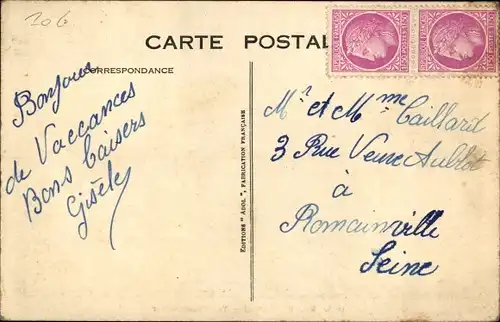 206
CARTE POSTAL
CORRESPONDANCE
Bonjour
de Vaccances
Bons baisers
Gisèle
EDITIONS "ADOL", FABRICATION FRANÇAISE
Mr et Mme Caillard
3 Rue Veuve Aublet
à
Romainville
Seine